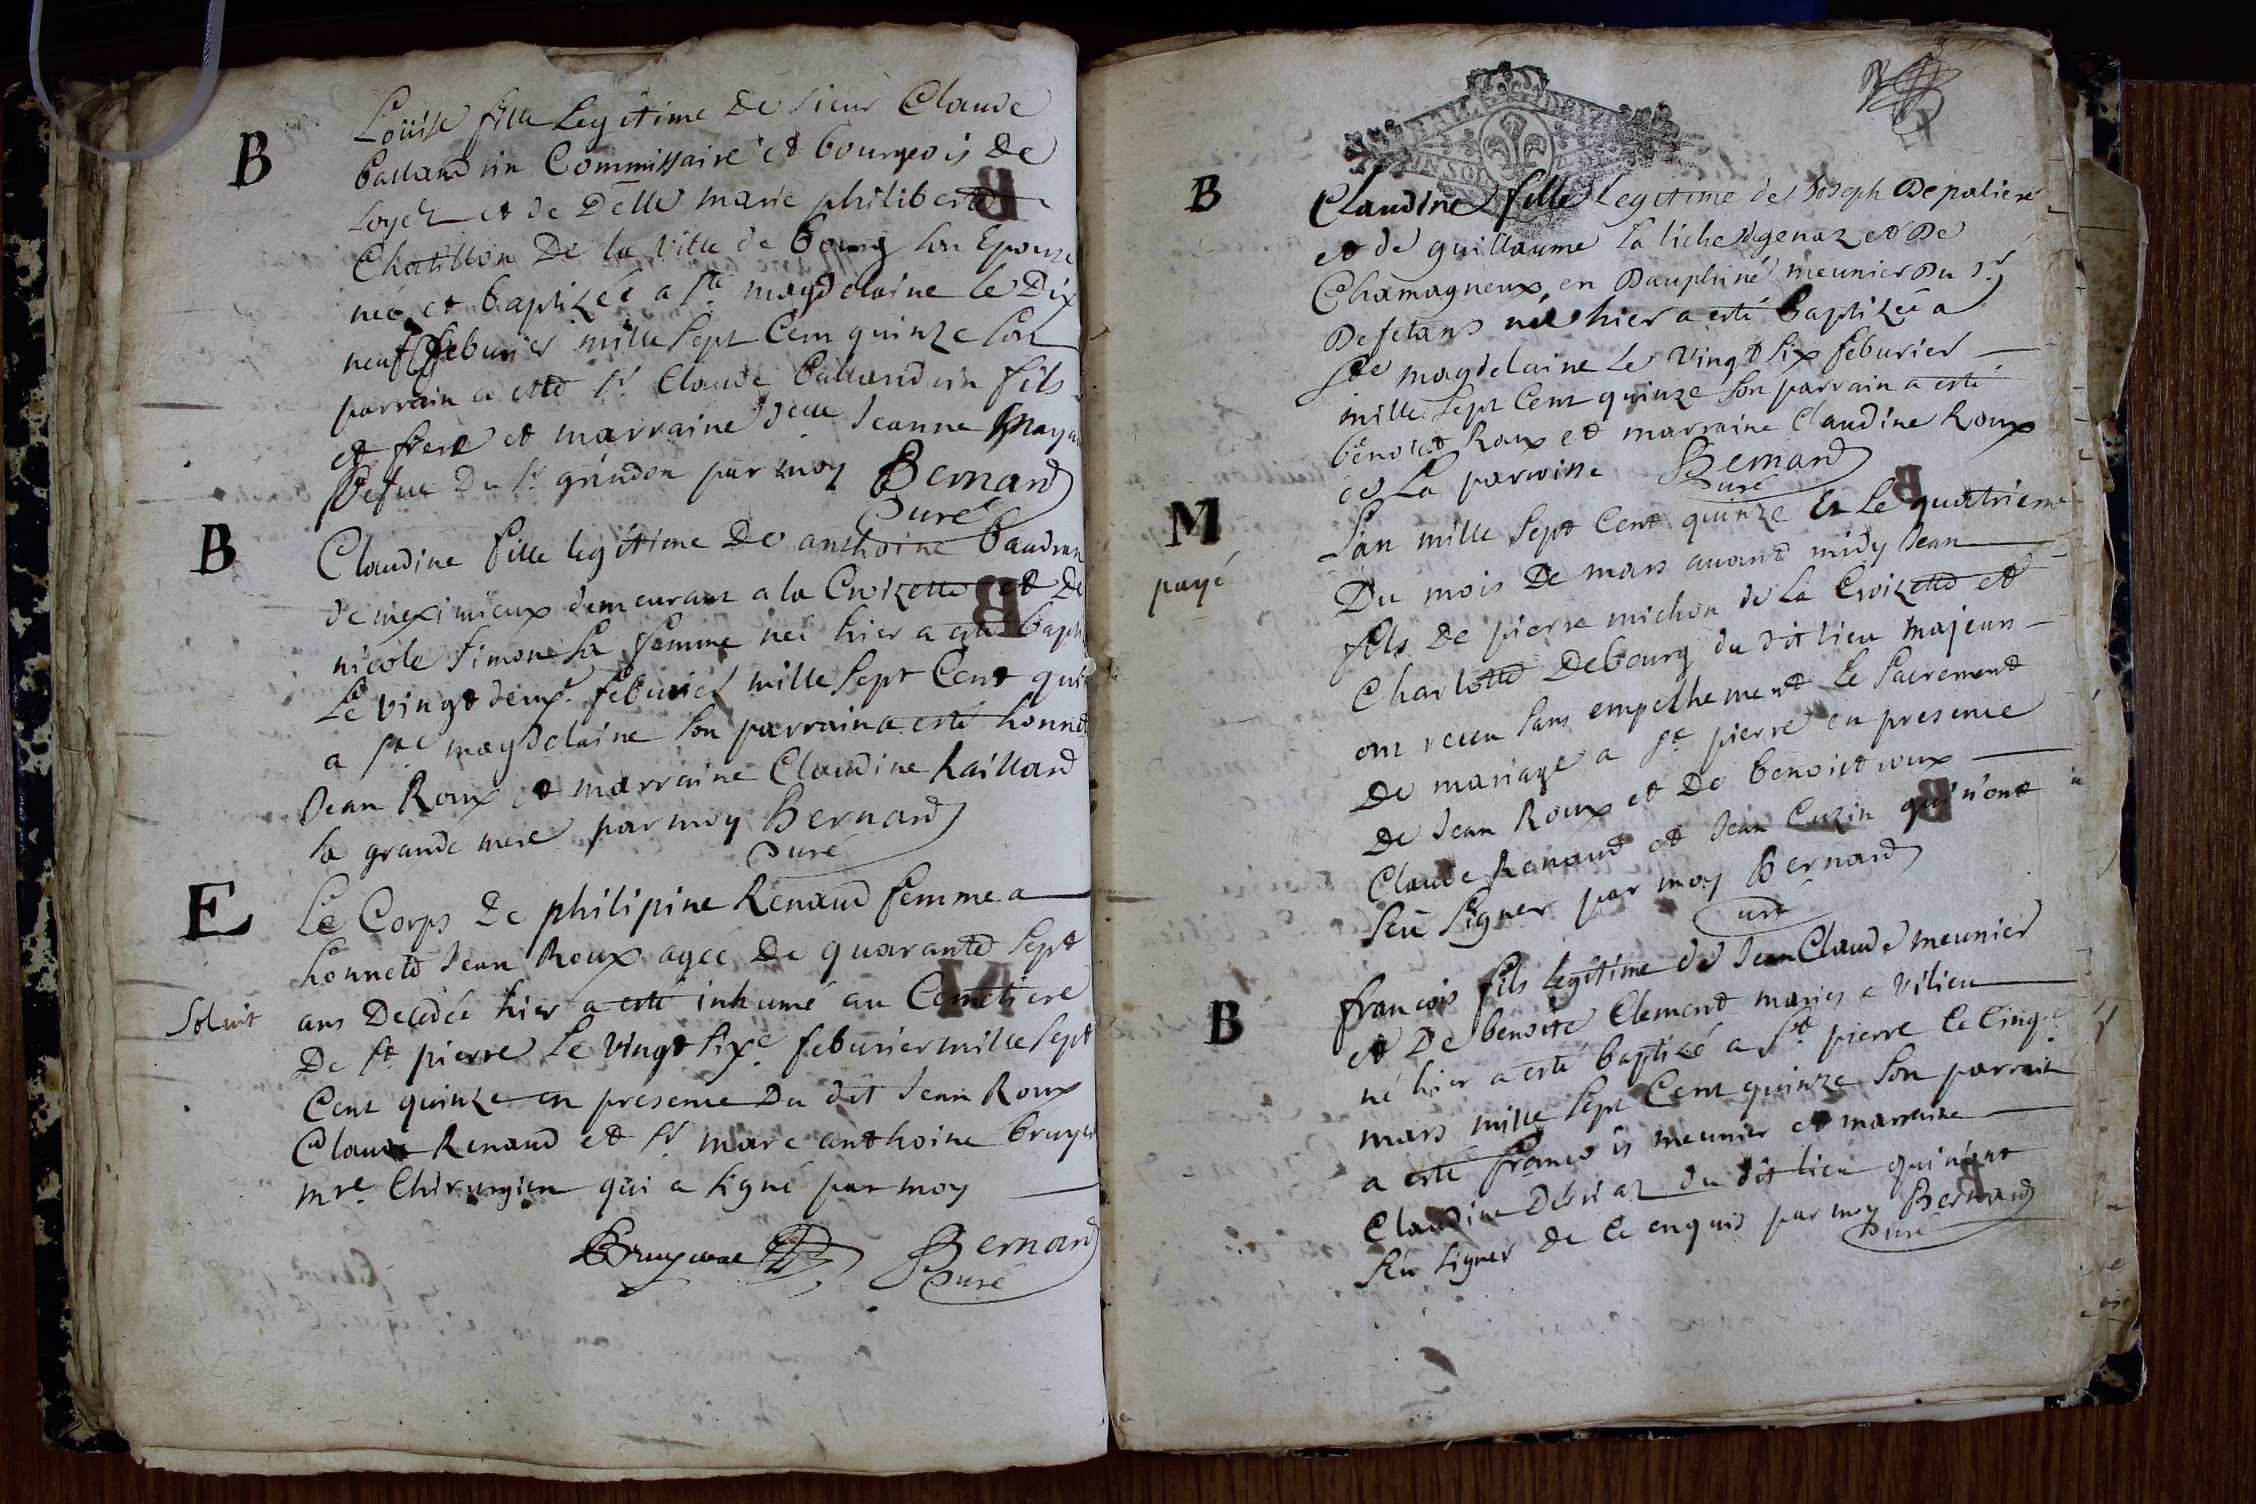 B
Loüise fille Legitime De sieur Claude
Ballandrin Commissaire et bourgeois De
Loyes et de Delle marie philiberte
Chatillon De la Ville de bourg son Epouze
neé et baptizeé a ste magdelaine le Dix
neuf feburier mille Sept Cent quinze son
parrain a esté sr. Claude Ballandrin fils
et frere et marraine delle Jeanne
Du sr. grindon par moy Bernard
Curé
B
Claudine fille legitime De anthoine baudran
de meximieux demeurant a la Croizette et De
nicole Simone sa femme neé hier a esté bapti
Le vingt deuxe. feburier mille Sept Cent qui
a ste magdelaine son parrain a esté honnet
Jean Roux et marraine Claudine Raillard
sa grande mere par moy Bernard
Curé
E
Le Corps De philipine Renaud femme a
honnete Jean Roux ageé De quarante Sept
Solvit
ans Decedeé hier a esté inhumé au Cemetiere
De st pierre Le vingt sixe. feburier mille Sept
Cent quinze en presence Du dit Jean Roux
Claude Renaud et sr. marc anthoine bruyer
mre. Chirurgien qui a signé par moy
Bernard
Curé
GENERAL
UN SOL
B
Claudine fille Legitime de Joseph
et de guillaume et De
Chamagneux en Dauphiné meunier Du sr
Defetans neé hier a esté baptizeé a
ste magdelaine Le Vingt six feburier
mille Sept Cent quinze son parrain a esté
benoict Roux et marraine Claudine Roux
La parroisse Bernard
Curé
M
payé
L'an mille Sept Cent quinze et Le quatrieme
Du mois De mars auant midy Jean
fils De pierre michon de La Croizette et
Charlotte Debourg du dit lieu majeurs
ont receu sans empechement Le Sacrement
De mariage a st pierre en presence
De Jean Roux et De benoict roux
Claude Renaud et Jean Cuzin qui n'ont
Seu Signer par moy Bernard
Curé
B
françois fils legitime de Jean Claude meunier
et De benoite Clement mariés a Vilieu
né hier a esté baptizé a st pierre Le Cinqe.
mars mille Sept Cent quinze son parrain
a esté françois meunier et marraine
Claudine du dit lieu qui n'ont
Seu signer De Ce enquis par moy Bernard
Curé